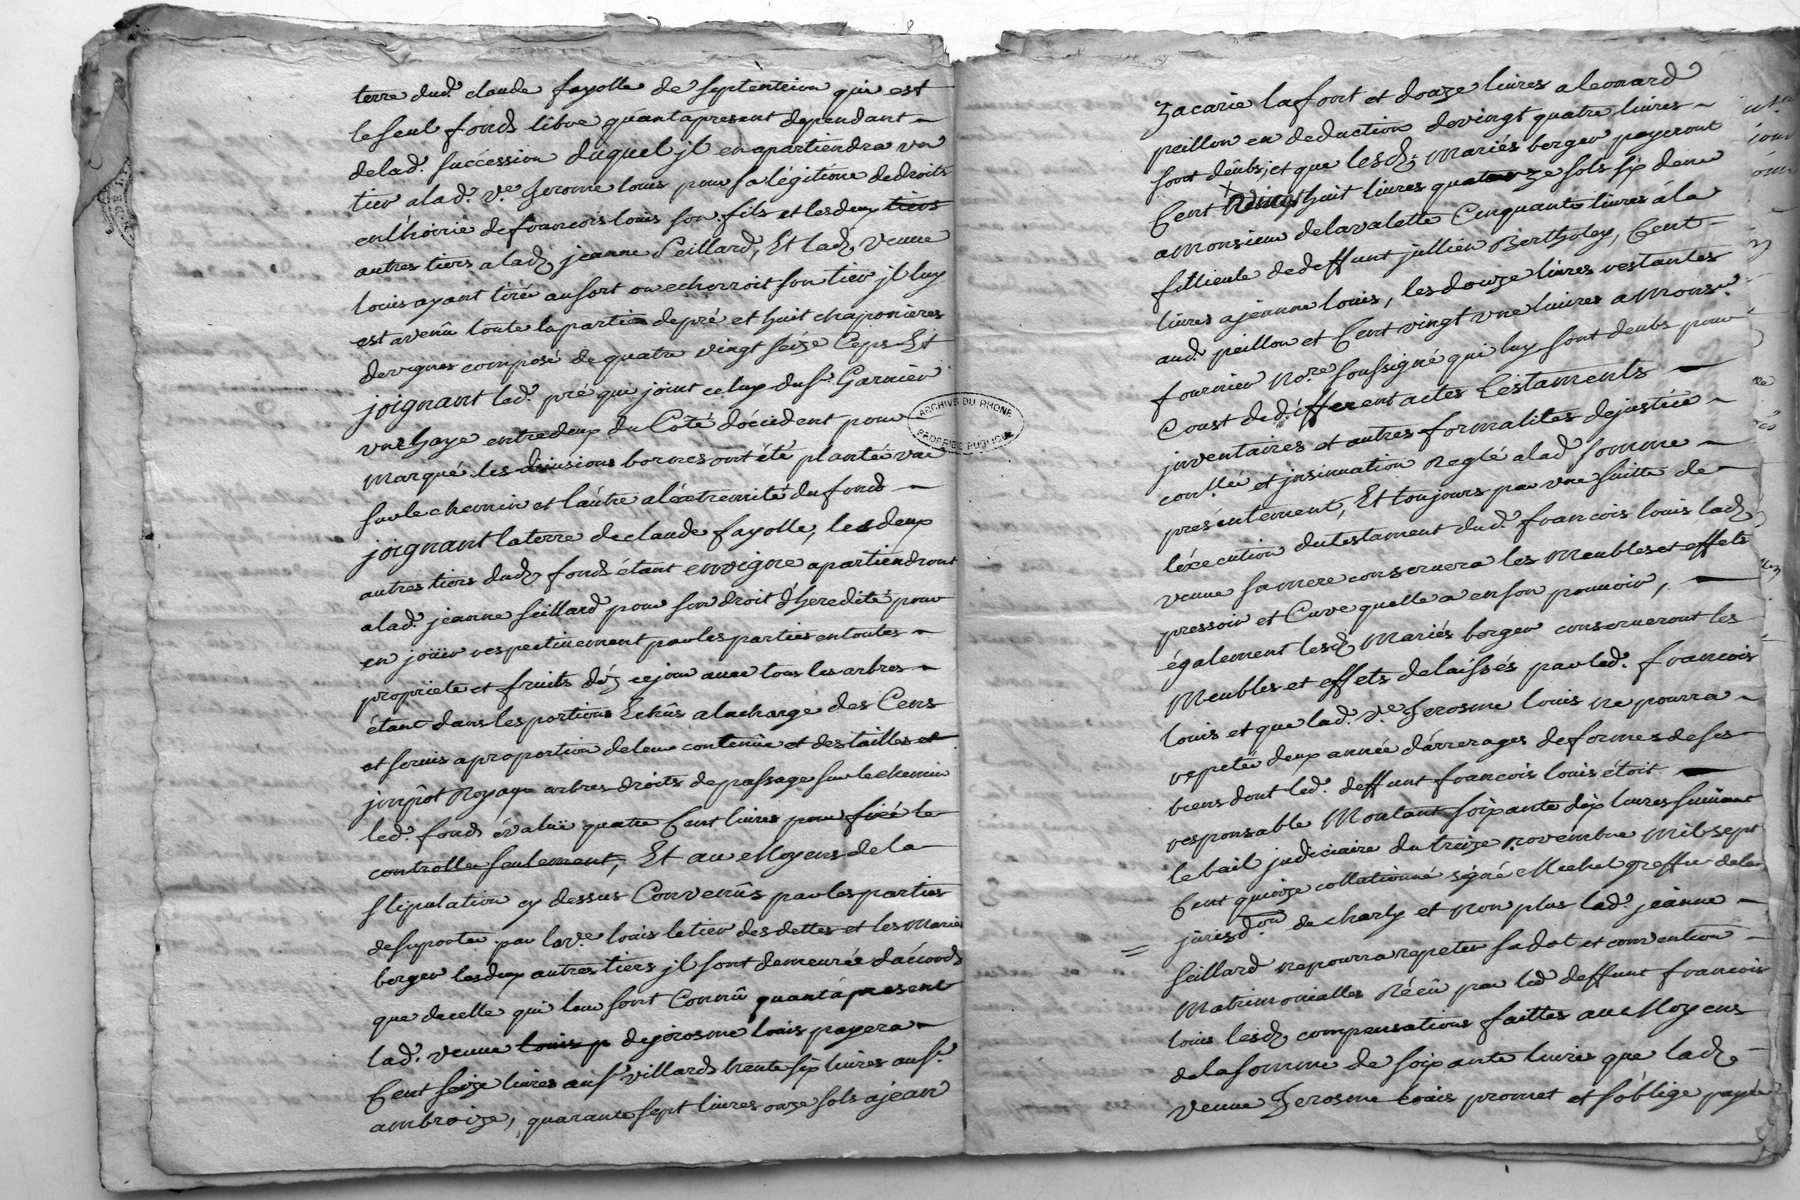 terre dud. claude fayolle de septentrion qui est
le seul fonds libre quant apresent dependant
delad. succession duquel jl en apartiendra un
tier alad. ve. Jerome louis pour sa légitime de droits
en l'hoirie de francois louis son fils et les deux tiers
autres tiers a lad. jeanne Seillard, Et lad. veuve
louis ayant tirée au sort ou echerroit son tier jl luy
est avenû toute la partie de pré et huit chaponieres
de vignes composé de quatre vingt seize Ceps Et
joignant led. pré qui joint celuy du sr. Garnier
une haye entredeux du Côté d'occident pour
marque les divisions bornes ont été planté une
sur le chemin et l'autre a l'extremité du fond
joignant la terre de claude fayolle, les deux
autres tiers dud. fonds étant en vigne apartiendront
a lad. jeanne seillard pour son droit d'heredité pour
en joüir respectivement par les parties en toutes
proprieté et fruits dés ce jour avec tous les arbres
étant dans les portions Echûs a la charge des Cens
et servis a proportion de leur contenüe et des tailles et
jmpôt Royaux arbres droits de passage sur le chemin
led. fonds évalüé quatre Cent livres pour fixé le
controlle seulement, Et au Moyens de la
stipulation cy dessus Convenûs par les parties
de suporter par la ve. louis le tier des dettes et les Mariés
berger les deux autres tiers jl sont demeurés d'accords
que de celle qui leur sont Connû quant á present
lad. veuve louis p de jerosme louis payera
Cent seize livres au sr. villards trente six livres au sr.
ambroize, quarante sept livres onze sols a jean
Zacarie lafont et douze livres a leonard
peillon en deduction de vingt quatre livres
sont deûbs, et que lesd. Mariés berger payeront
Cent vingt huit livres quatorze sols six denier
a Monsieur delavalette Cinquante livres á la
fillieule de deffunt jullien Bertholey, Cent
livres a jeanne louis, les douze livres restantes
aud. peillon et Cent vingt une livres a Monsr.
fournier nore. soussigné qui luy sont deubs pour
Coust de différent actes testaments
jnventaires et autres formalites de justice
conllée et jnsinuation Reglé a lad. somme
présentement, Et toujours par une suitte de
l'éxecution du testament dud. francois louis lad.
veuve sa mere conservera les Meubles et effets
pressoir et Cuve quelle a en son pouvoir,
également lesd. Mariés berger conserveront les
Meubles et effets delaissés par led. francois
louis et que lad. ve. Jerosme louis ne pourra
repeter deux année d'arrerages de fermes de ses
biens dont led. deffunt francois louis étoit
responsable Montant soixante dix livres suivant
le bail judiciaire du treize novembre Mil sept
Cent quinze collationné signé Michel greffier de la
jurisdon. de charly et Non plus lad. jeanne
seillard ne pourra repeter sa dot et convention
Matrimonialles Récû par led. deffunt francois
louis lesd. compensations faittes au Moyens
de la somme de soixante livres que lad.
veuve Jerosme louis promet et s'oblige payée
ARCHIVES DU RHONE
PROPRIETE PUBLIQUE